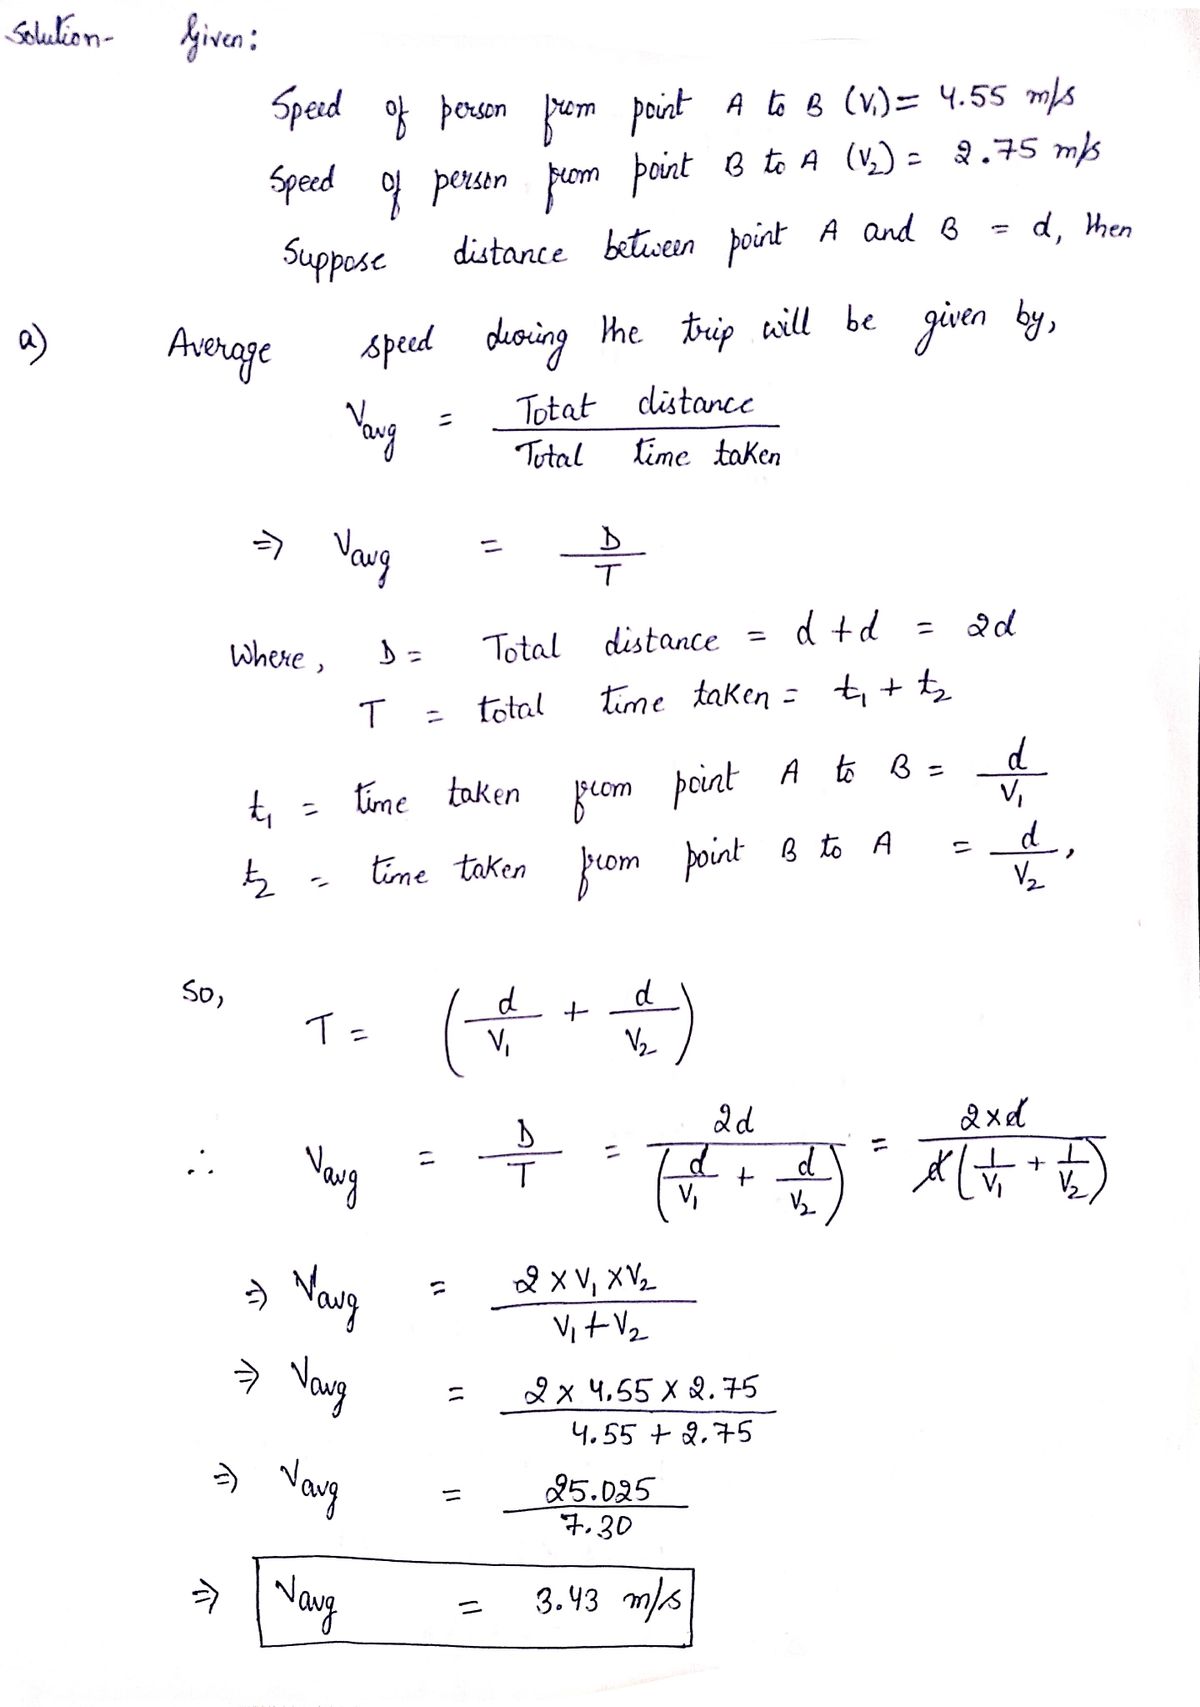 Solution- Given:
Speed of person from point A to B (V₁) = 4.55 m/s
Speed of person from point B to A (V₂) = 2.75 m/s
Suppose distance between point A and B = d, then
a) Average speed during the trip will be given by,
Vavg = Totat distance / Total time taken
⇒ Vavg = D / T
Where, D = Total distance = d + d = 2d
T = total time taken = t₁ + t₂
t₁ = time taken from point A to B = d / V₁
t₂ = time taken from point B to A = d / V₂ ,
So, T = ( d / V₁ + d / V₂ )
∴ Vavg = D / T = 2d / ( d / V₁ + d / V₂ ) = 2 × d / d ( 1 / V₁ + 1 / V₂ )
⇒ Vavg = 2 × V₁ × V₂ / V₁ + V₂
⇒ Vavg = 2 × 4.55 × 2.75 / 4.55 + 2.75
⇒ Vavg = 25.025 / 7.30
⇒ Vavg = 3.43 m/s